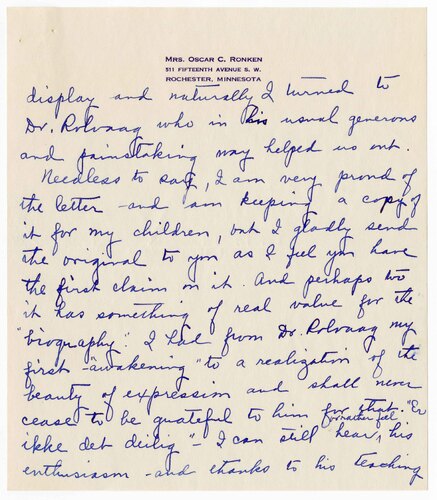 MRS. OSCAR C. RONKEN
511 FIFTEENTH AVENUE S. W.
ROCHESTER, MINNESOTA
display and naturally I turned to
Dr. Rolvaag who in his usual generous
and painstaking way helped us out.
Needless to say, I am very proud of
the letter - and am keeping a copy of
it for my children, but I gladly send
the original to you as I feel you have
the first claim on it. And perhaps too
it has something of real value for the
"biography". I had from Dr. Rolvaag my
first "awakening" to a realization of the
beauty of expression and shall never
cease to be grateful to him for that. "Er
ikke det deilig" - I can still hear, or rather feel his
enthusiasm - and thanks to his teaching